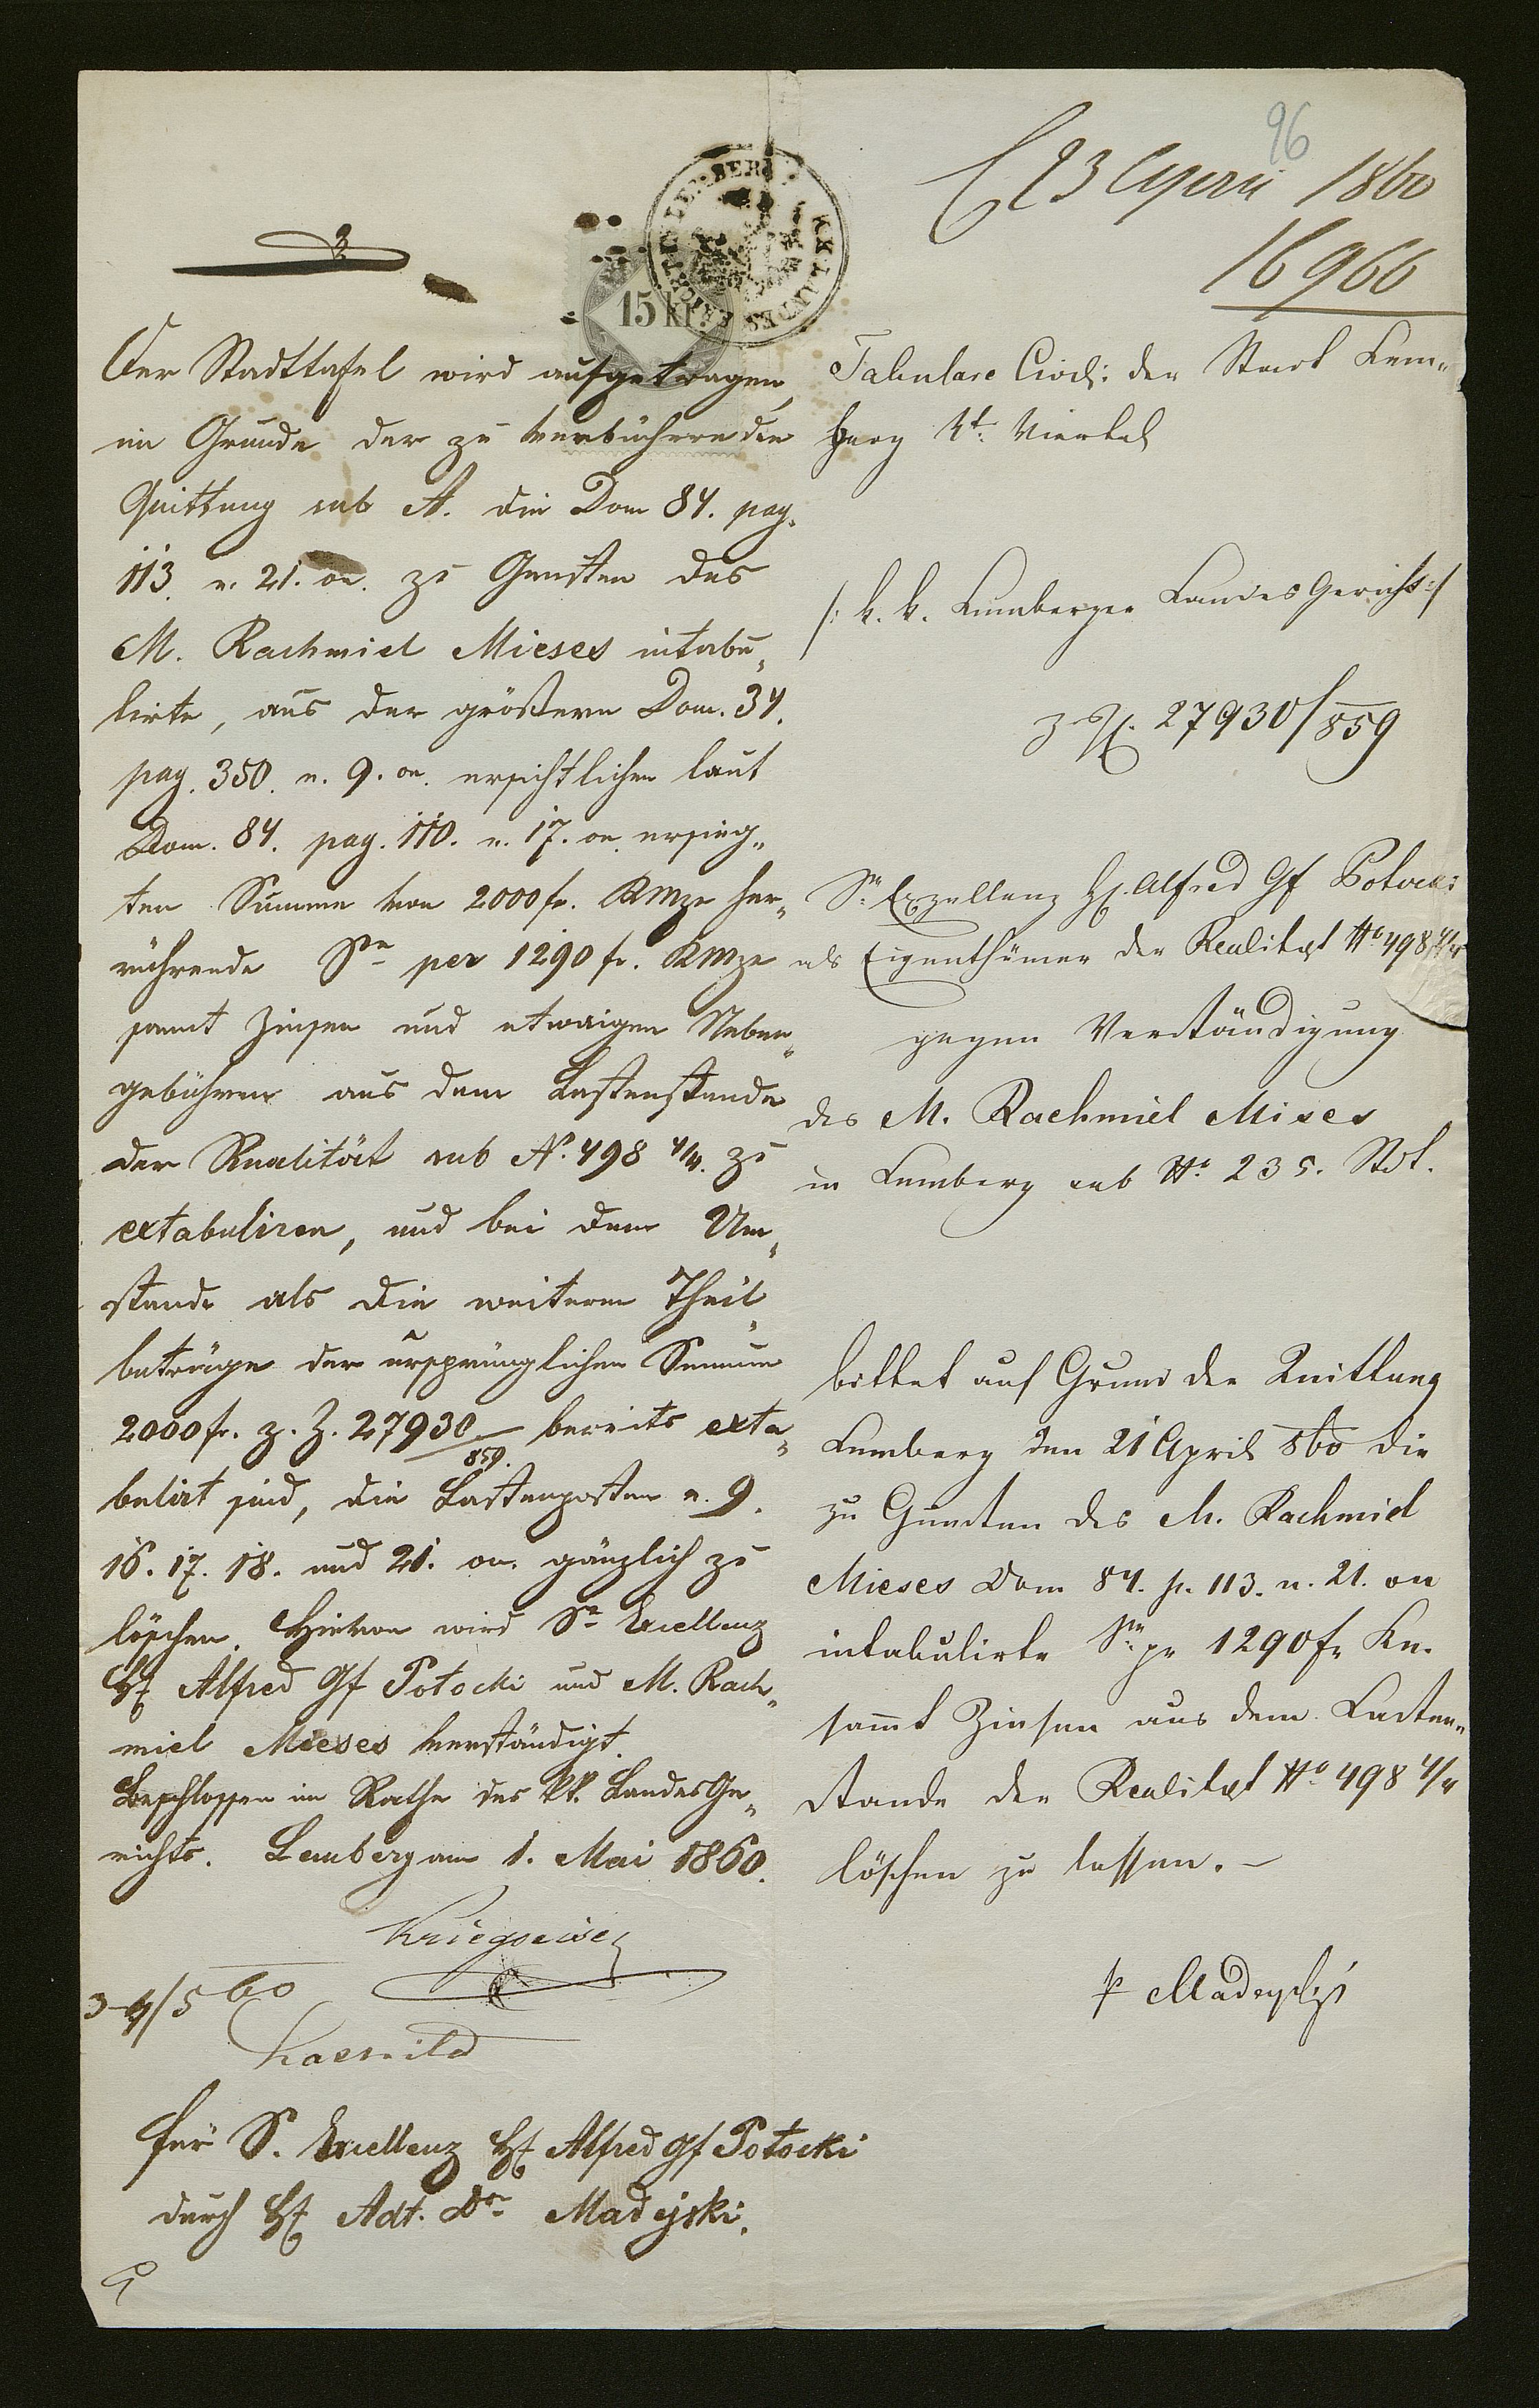 96
23 April 1860
16966
15 kr
Der Stadttafel wird aufgetragen,
im Grunde der zu verbüchernden
Quittung sub A. die Dom 84. pag.
113. n. 21. on. zu Gunsten des
M. Rachmiel Mieses intabu„
lirte, aus der größern Dom. 34.
pag. 350. n. 9. on. ersichtlichen laut
Dom. 84. pag. 110. n. 17. on. ersieg„
ten Summe von 2000 fr. KMze her„
rührende Sе per 1290 fr. KMze
sammt Zinsen und etwaigen Neben„
gebühren aus dem Lastenstande
der Realität sub No. 498 4/4. zu
extabuliren, und bei dem Um„
stande als die weiteren Theil„
beträge der ursprünglichen Summe
2000 fr. z. Z. 27930/859. bereits exta„
bulirt sind, die Lastenposten n. 9.
16. 17. 18. und 21. on. gänzlich zu
löschen. Hievon wird Se Excellenz
H. Alfred Gf Potocki und M. Rach„
miel Mieses verständigt.
Beschlossen im Rathe des kk. LandesGe„
richts. Lemberg am 1. Mai 1860.
Kriegseisen
3-4/5 60
für S. Excellenz H. Alfred Gf Potocki
durch H. Adt. Dr Madejski.
Tabulare Civil: der Stadt Lem„
berg 4t. Viertel
/: k. k. Lemberger LandesGericht :/
z. Z. 27930/859
Se Exzellenz H. Alfred Gf Potocki
als Eigenthümer der Realität No 498 4/4
gegen Verständigung
des M. Rachmiel Mises
in Lemberg sub No. 235. Stdt.
bittet auf Grund der Quittung
Lemberg den 21 April 860 die
zu Gunsten des M. Rachmiel
Mieses Dom 84. p. 113. n. 21. on
intabulirte Sе pr 1290 fr Km.
sammt Zinsen aus dem Lasten„
stande der Realität No 498 4/4
löschen zu lassen. –
Madejski